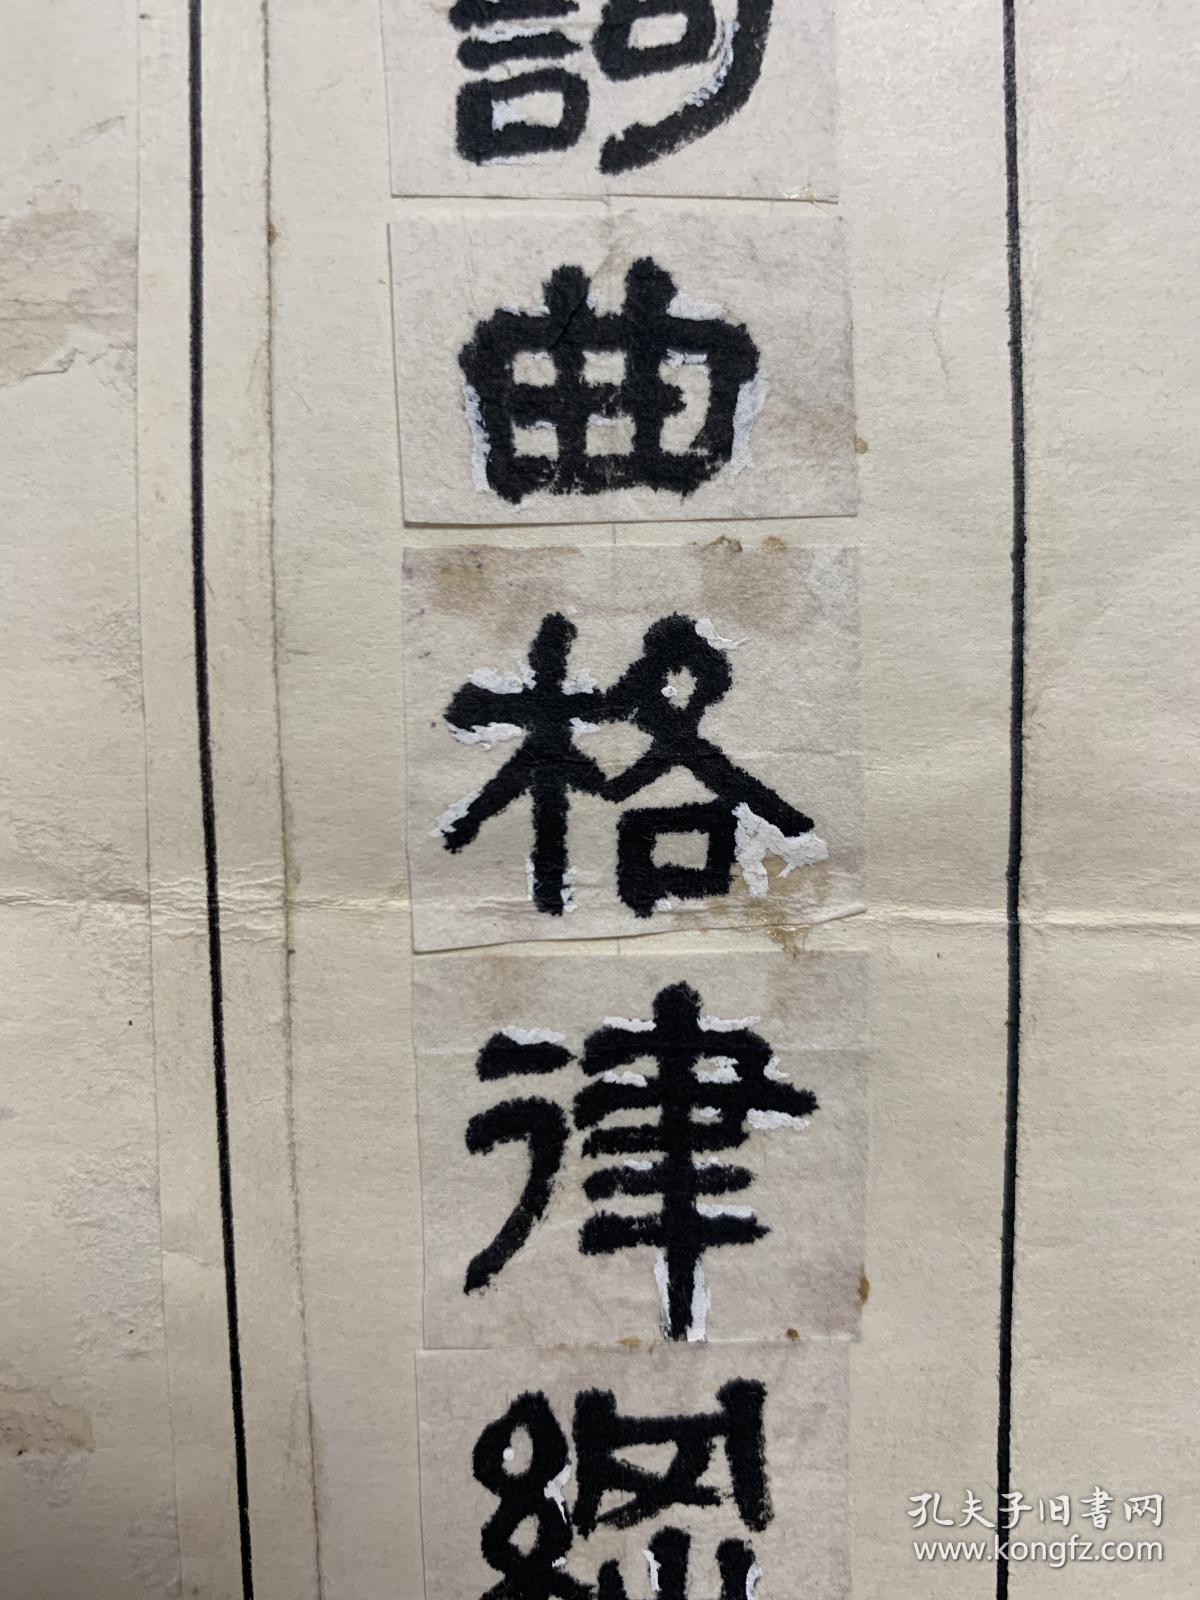 詞曲格律
孔夫子旧书网
www.kongfz.com